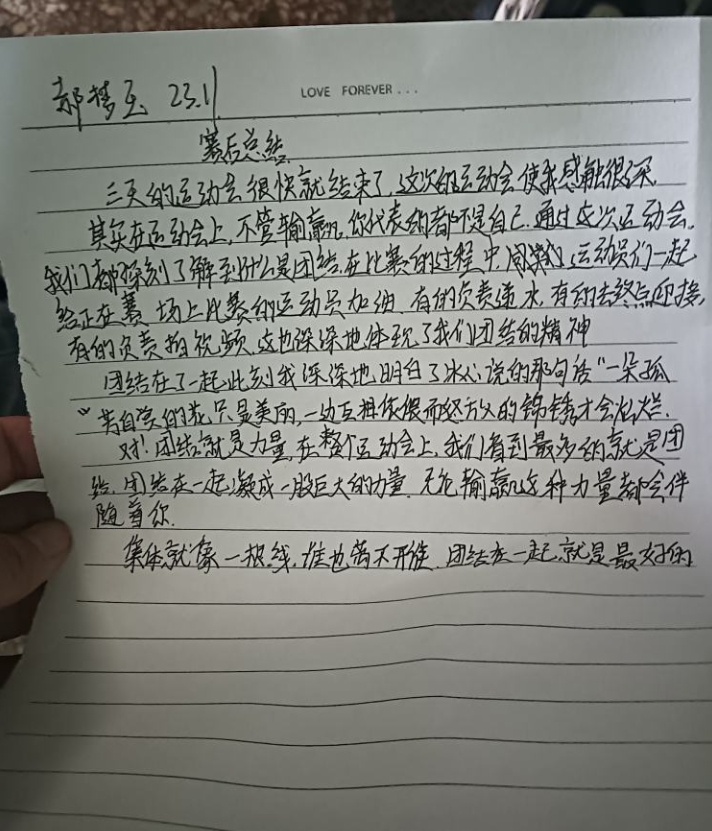 郝梦玉 23.11
LOVE FOREVER...
赛后总结
三天的运动会很快就结束了,这次的运动会使我感触很深
其实在运动会上,不管输赢,你代表的都不是自己.通过这次运动会,
我们都深刻了解到什么是团结.在比赛的过程中,同 运动员们一起
给正在赛场上比赛的运动员加油.有的负责递水,有的去终点迎接,
有的负责拍视频,这也深深地体现了我们团结的精神
团结在了一起此刻我深深地明白了冰心说的那句话"一朵孤
芳自赏的花只是美丽,一边互相依偎而怒放的锦绣才会灿烂.
对!团结就是力量,在整个运动会上,我们看到最多的就是团
结,团结在一起凝成一股巨大的力量.无论输赢这种力量都会伴
随着你.
集体就像一根线,谁也离不开谁.团结在一起就是最好的